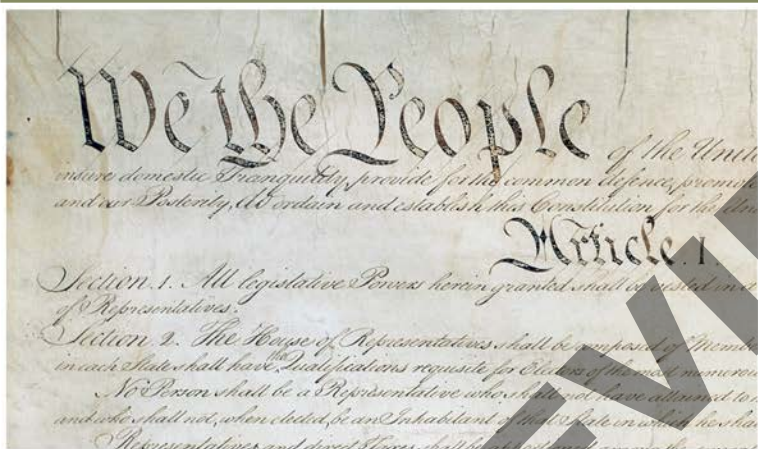 We the People
of the Unite
insure domestic Tranquility, provide for the common defence, promote
and our Posterity, do ordain and establish this Constitution for the Un
Article. I.
Section. 1. All legislative Powers herein granted shall be vested in a
of Representatives.
Section 2. The House of Representatives shall be composed of Membe
in each State shall have the Qualifications requisite for Electors of the most numerou
No Person shall be a Representative who shall not have attained to
and who shall not, when elected, be an Inhabitant of that State in which he sha
Representatives and direct Taxes shall be apportioned among the several
EVI